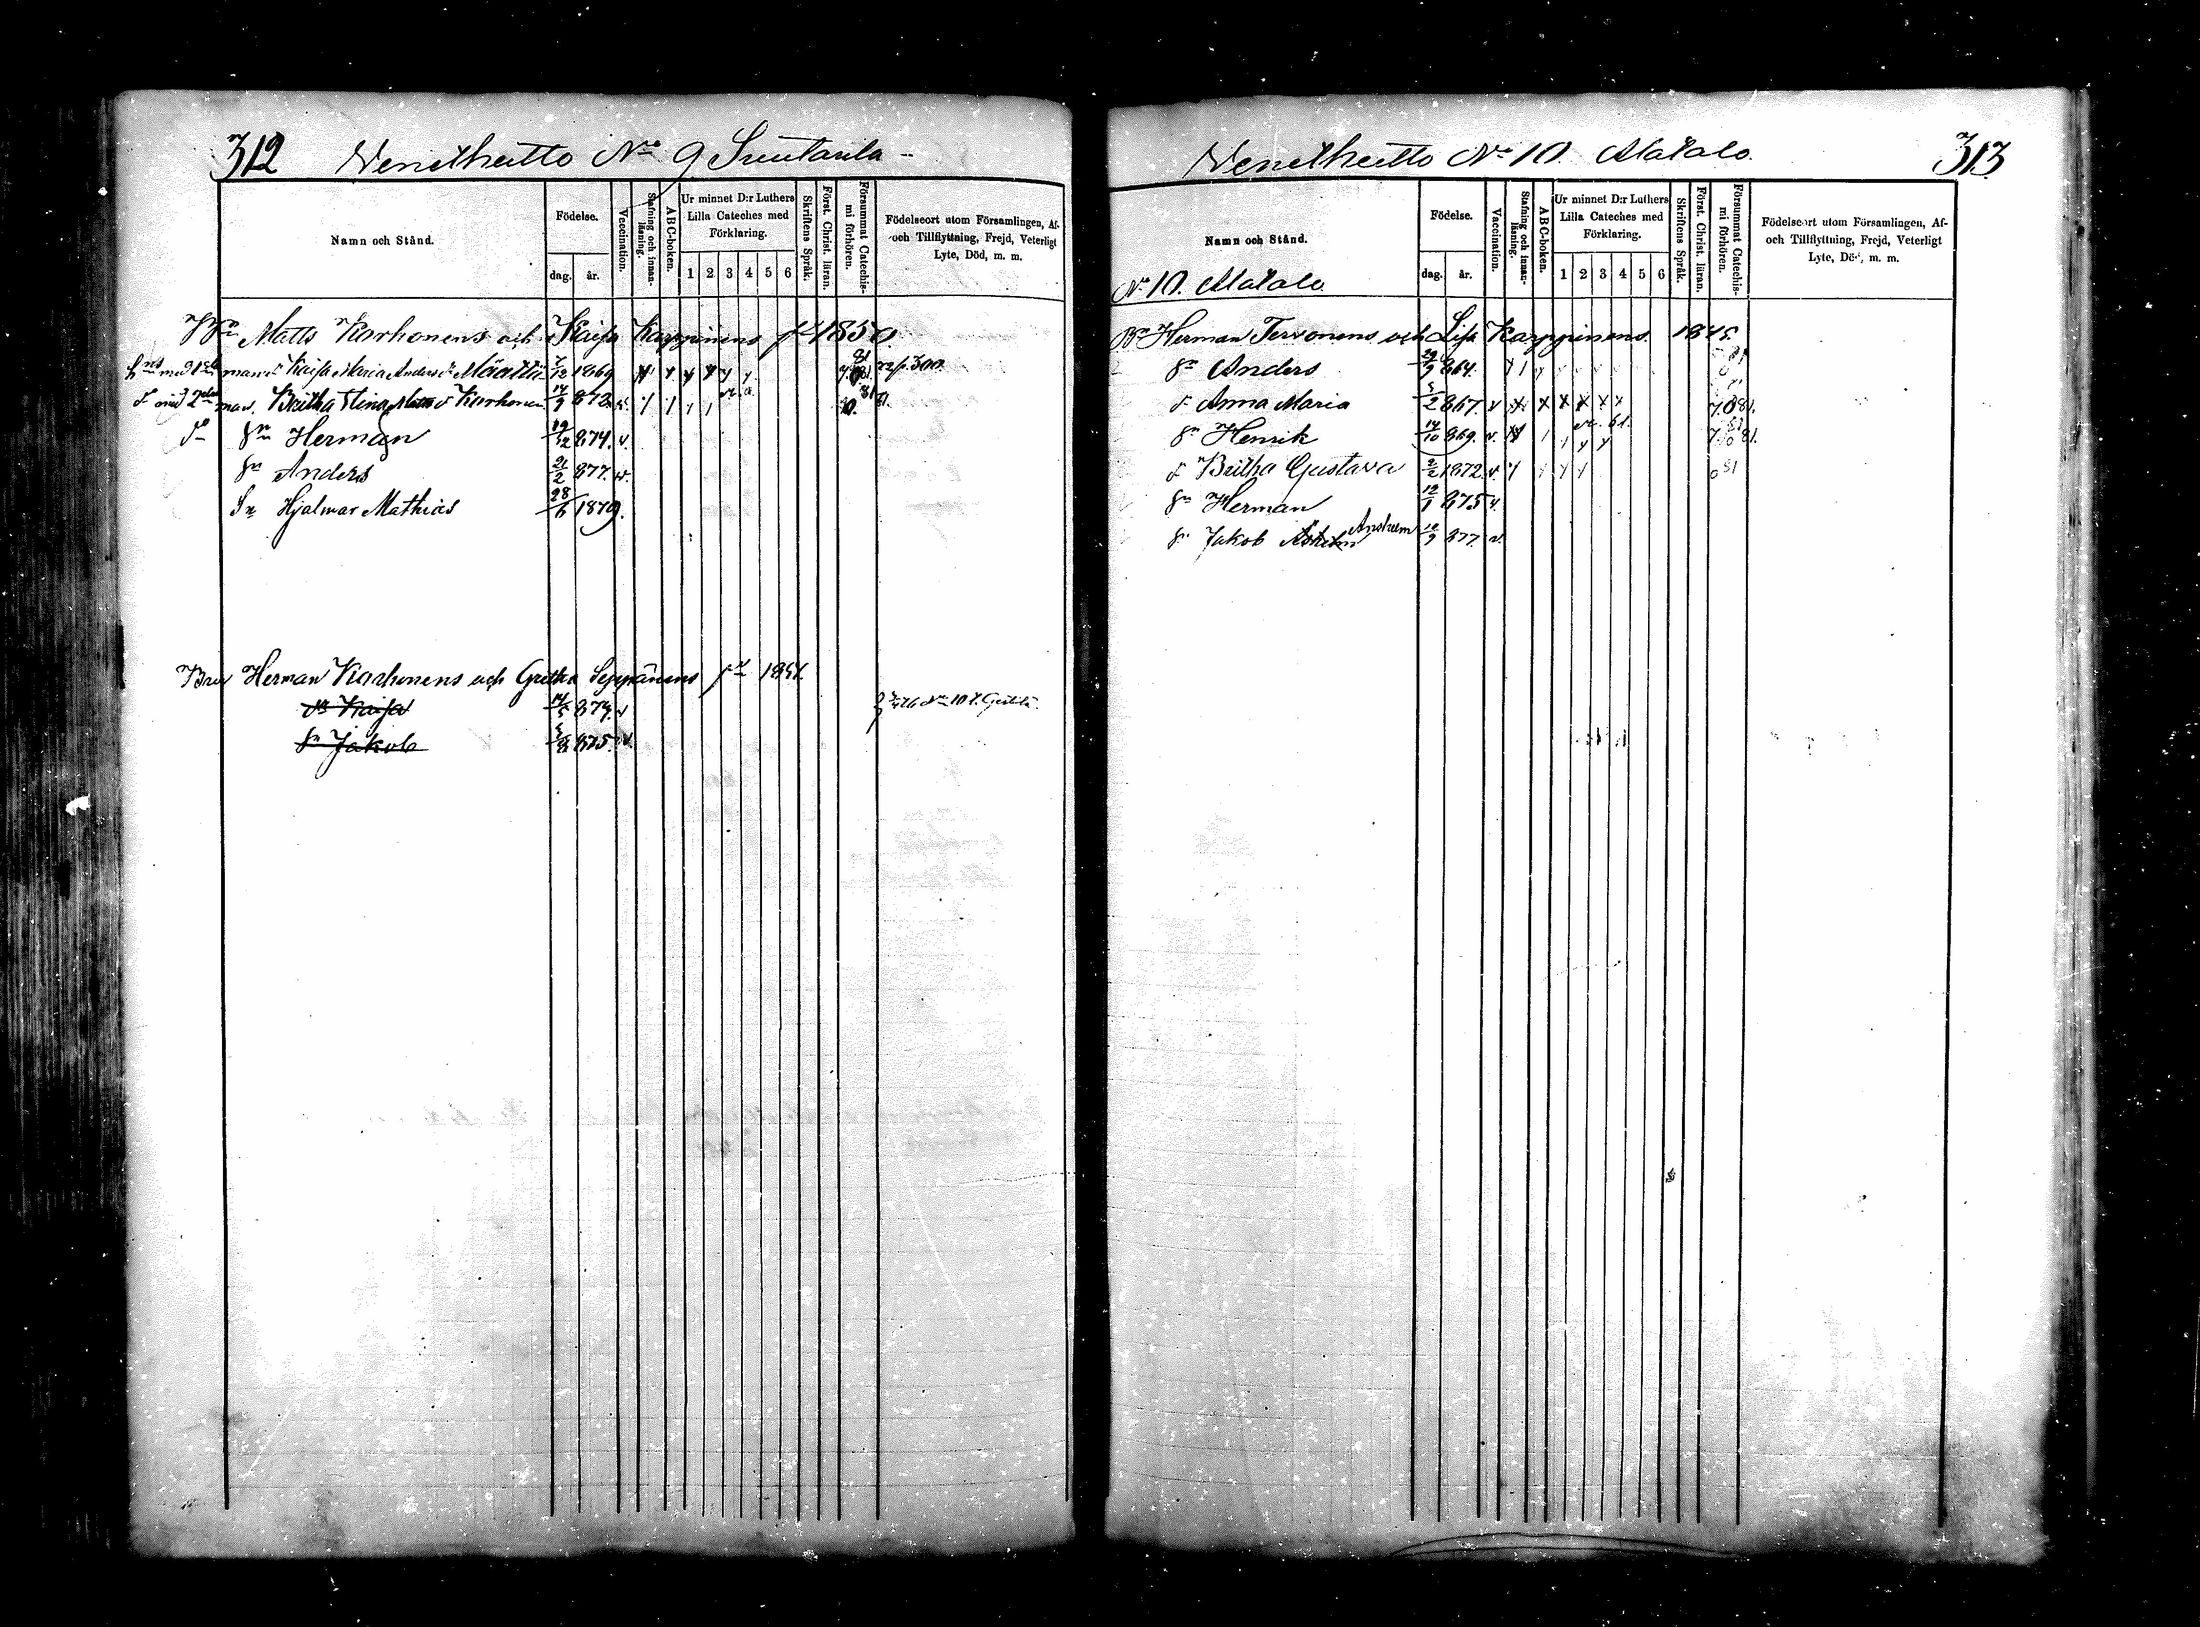 312 Venetheitto No 9 Suutarila
Namn och Stånd.
Födelse.
dag. år.
Vaccination.
Stafning och innan-läsning.
ABC-boken.
Ur minnet D:r Luthers
Lilla Cateches med
Förklaring.
1 2 3 4 5 6
Skriftens Språk.
Först. Christ. läran.
Försummat Catechis-mi förhören.
Födelseort utom Församlingen, Af-
och Tillflyttning, Frejd, Veterligt
Lyte, Död, m. m.
Matts Karhonens och Kaisa Karppinens 1850
Kaisa Maria Anders dr Määttä 7/12 1869 300
Britha Stina Karhonen 14/9 872
Herman 19/12 874. v.
Anders 21/2 877. v.
Hjalmar Mathias 28/6 1879.
Herman Karhonens och Gretha Seppänens
Kaisa 874. v
Jakob 875. v.
Venetheitto No 10. Matalo. 313
Namn och Stånd.
No 10. Matalo
Födelse.
dag. år.
Vaccination.
Stafning och innan-läsning.
ABC-boken.
Ur minnet D:r Luthers
Lilla Cateches med
Förklaring.
1 2 3 4 5 6
Skriftens Språk.
Först. Christ. läran.
Försummat Catechis-mi förhören.
Födelseort utom Församlingen, Af-
och Tillflyttning, Frejd, Veterligt
Lyte, Död, m. m.
Herman Tervonens och Lisa Karppinens 1845.
Anders 29/9 864.
Anna Maria 867. v
Henrik 14/10 869. v.
Britha Gustava 1872. v.
Herman 12/1 875 v.
Jakob Anshelm 877. v.